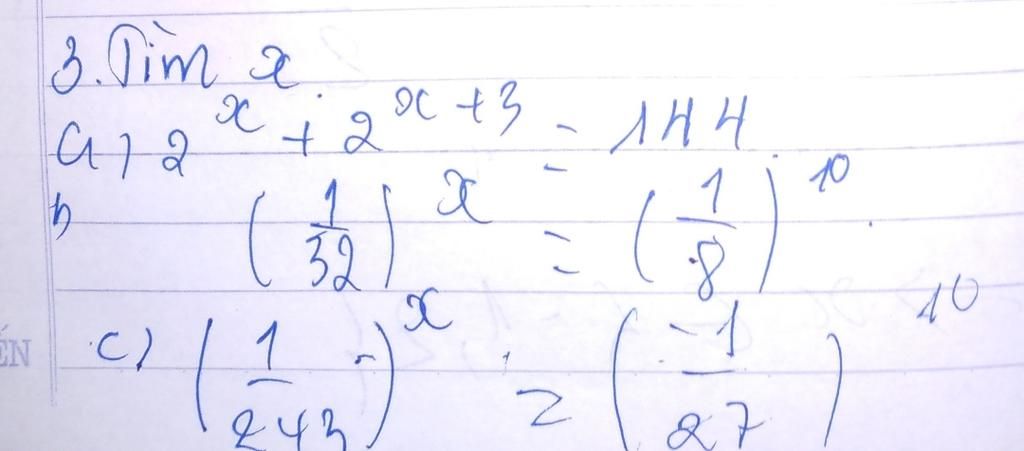 3. Tìm x.
a) 2^x + 2^{x+3} = 144
b (1/32)^x = (1/8)^10.
c) (1/243)^x = (-1/27)^10
ÊN